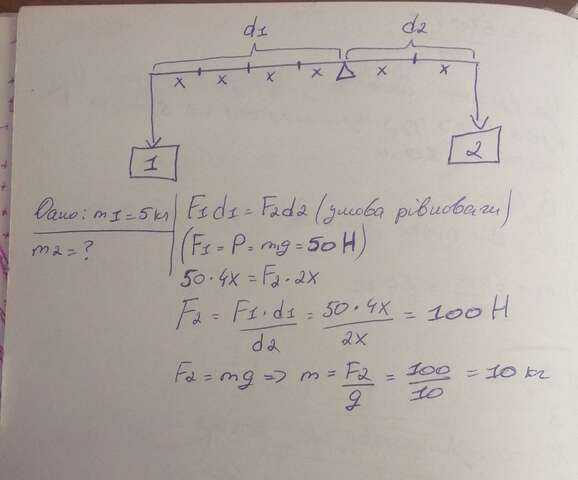 d1 d2
x x x x x x
1 2
Дано: m1=5кг
m2=?
F1d1=F2d2 (умова рівноваги)
(F1=P=mg=50H)
50·4x=F2·2x
F2 = F1·d1/d2 = 50·4x/2x = 100 H
F2=mg => m = F2/g = 100/10 = 10 кг